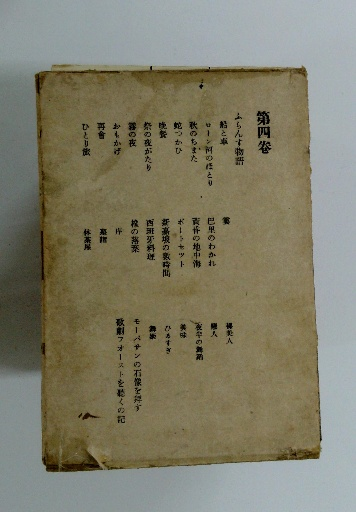 第四卷
ふらんす物語
船と車
ローン河のほとり
秋のちまた
蛇つかひ
晩餐
祭の夜がたり
霧の夜
おもかげ
再會
ひとり旅
雲
巴里のわかれ
黄昏の地中海
ポートセット
新嘉坡の數時間
西班牙料理
橡の落葉
序
墓詣
休茶屋
裸美人
戀人
夜半の舞蹈
美味
ひるすぎ
舞姫
モーパサンの石像を拜す
歌劇フオーストを聽くの記